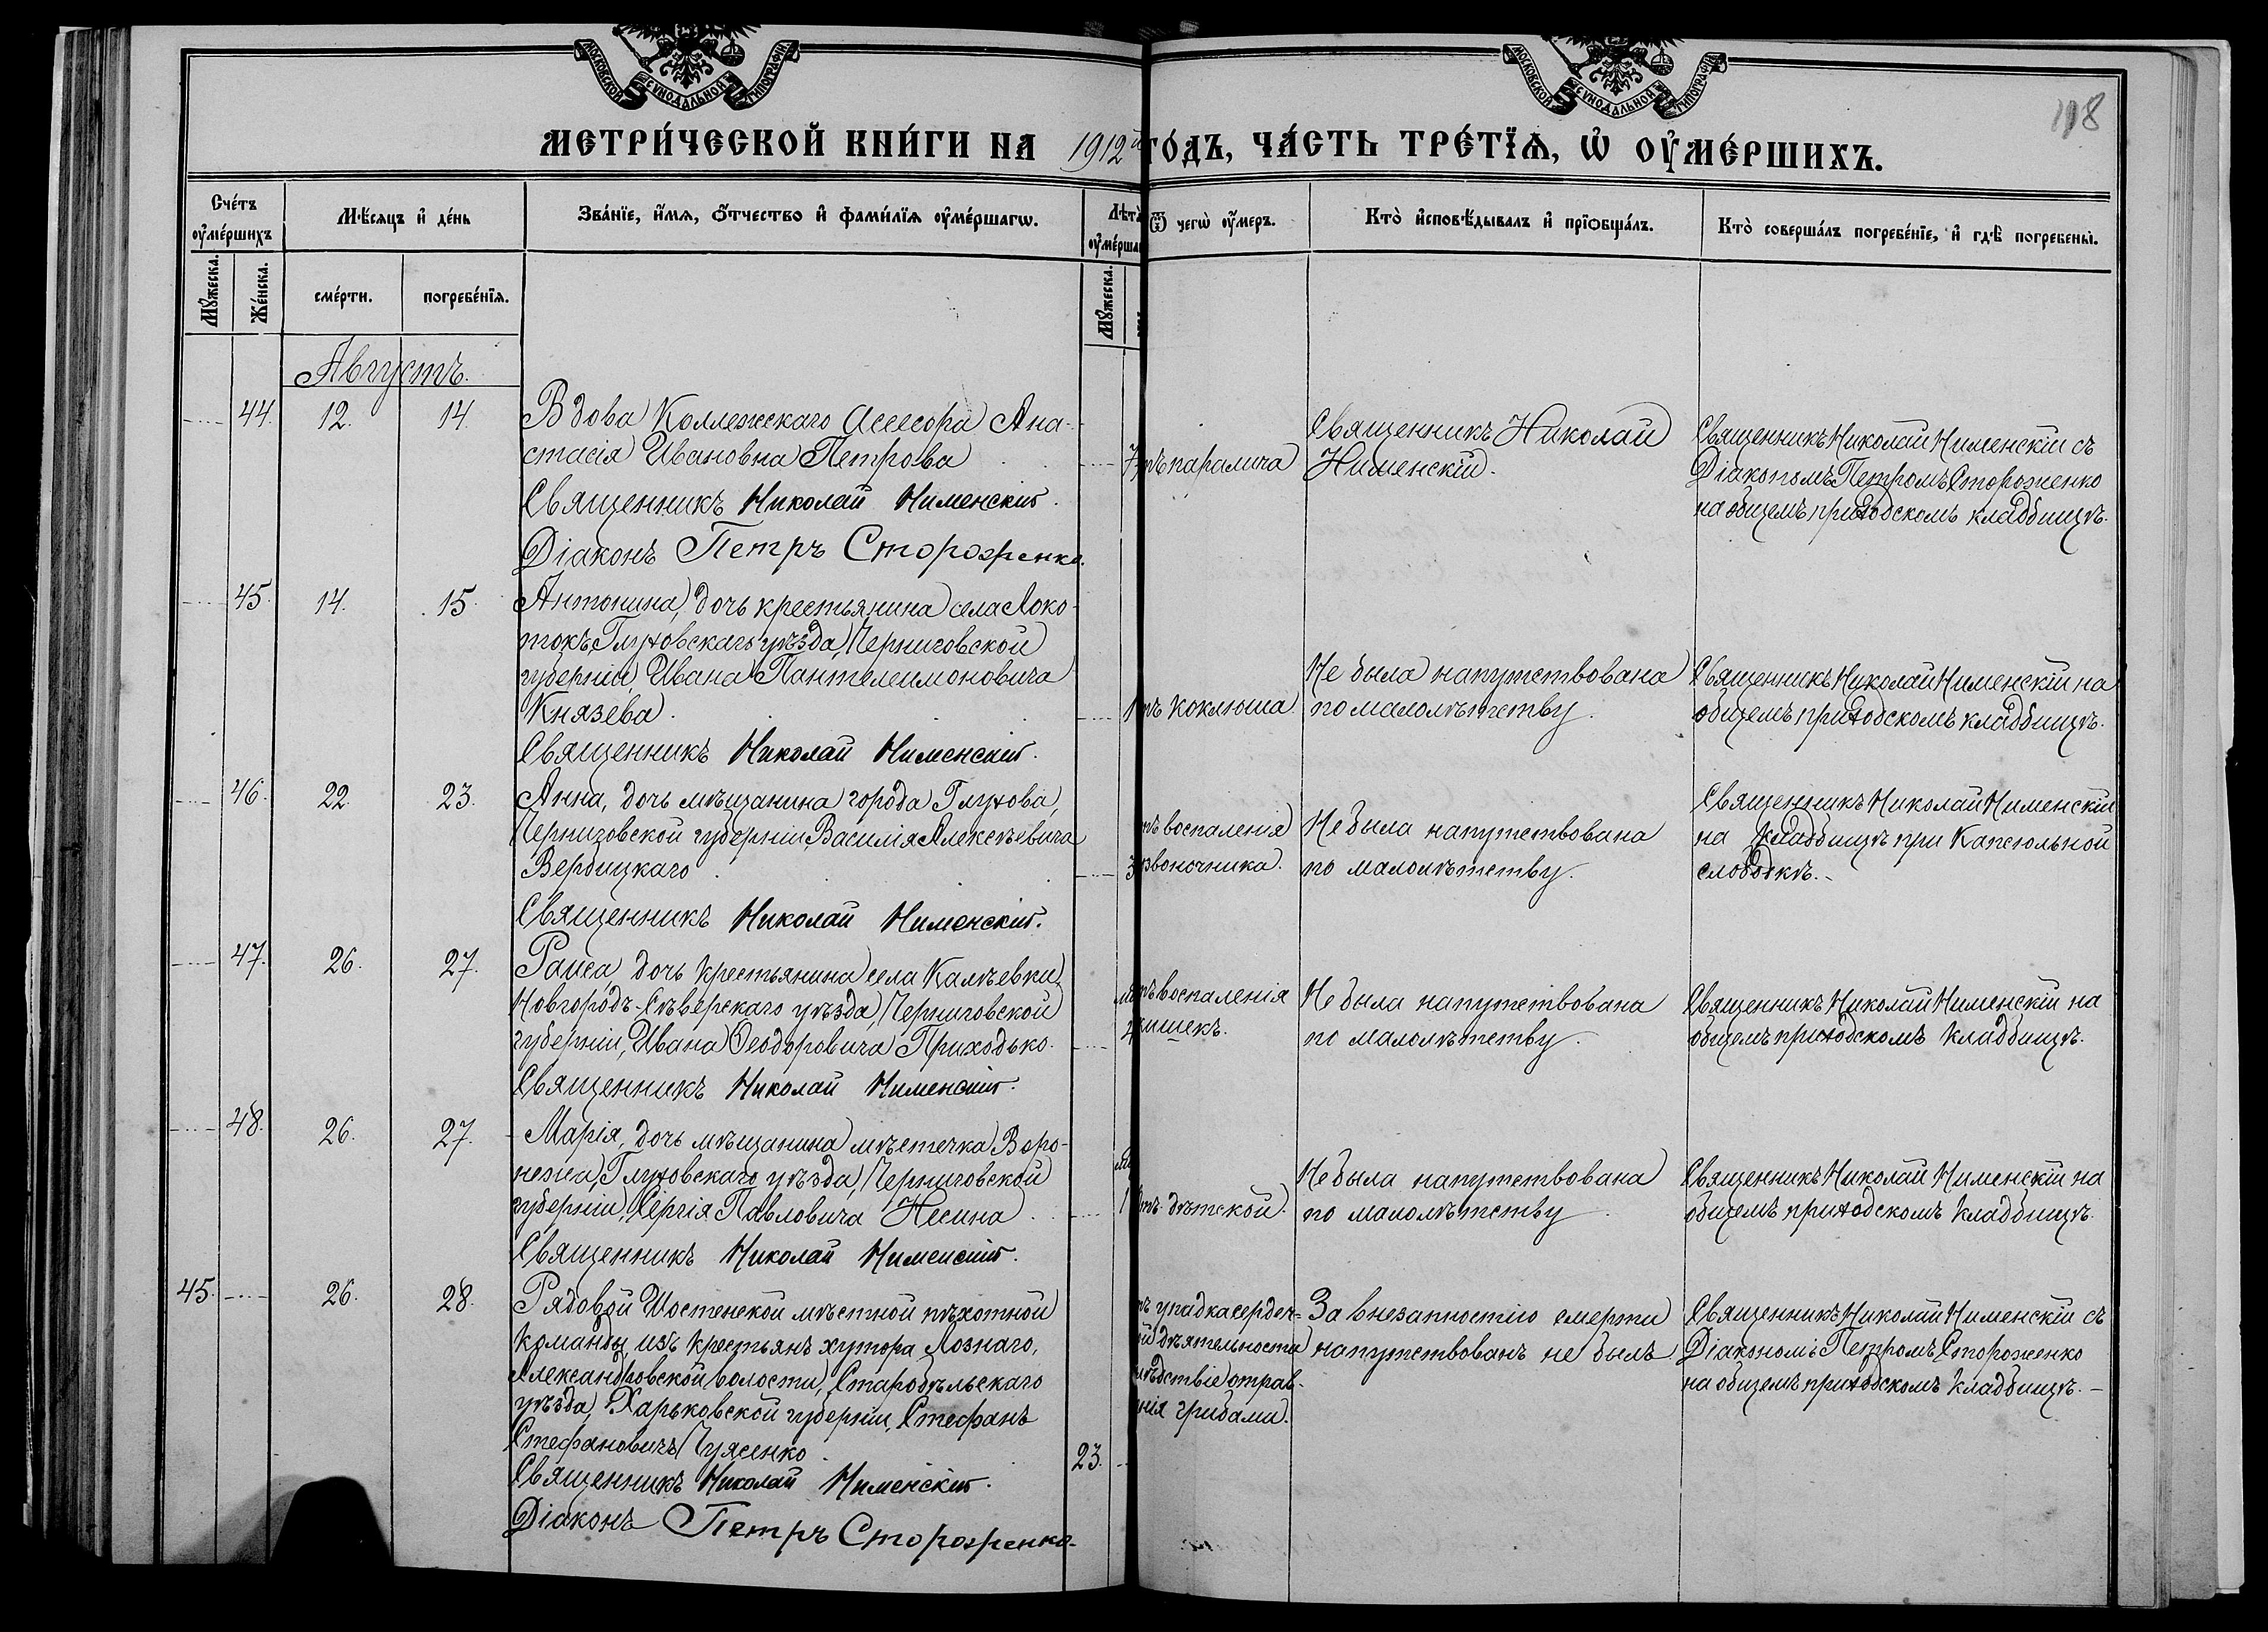 МОСКОВСКОЙ СѴНОДАЛЬНОЙ ТИПОГРАФІИ
МОСКОВСКОЙ СѴНОДАЛЬНОЙ ТИПОГРАФІИ
118
МЕТРИ́ЧЕСКОЙ КНИ́ГИ НА 1912й ГО́ДЪ, ЧА́СТЬ ТРЕ́ТЇѦ, Ѡ҆ ОУ҆МЕ́РШИХЪ.
Сче́тъ оу҆ме́ршихъ
Мѣ́сѧцъ и҆ де́нь
Зва́нїе, и҆́мѧ, ѻ҆́тчество и҆ фами́лїѧ оу҆ме́ршагѡ.
Лѣт
оу҆ме́рша
Ѿ чегѡ̀ оу҆́меръ.
Кто̀ и҆сповѣ́дывалъ и҆ прїѡбща́лъ.
Кто̀ соверша́лъ погребе́нїе, и҆ гдѣ̀ погребены̀.
Мꙋ́жеска.
Же́нска.
сме́рти.
погребе́нїѧ.
Мꙋ́жеска.
Августъ.
44. 12. 14.
Вдова Коллежскаго Асессора Ана-
стасія Ивановна Петрова
Священникъ Николай Нименскій.
Діаконъ Петръ Стороженко.
7
тъ паралича
Священникъ Николай
Нименскій.
Священникъ Николай Нименскій съ
Діакономъ Петромъ Стороженко
на общемъ приходскомъ кладбищѣ.
45. 14. 15.
Антонина, дочь крестьянина села Локо-
токъ, Глуховскаго уѣзда, Черниговской
губерніи, Ивана Пантелеимоновича
Князева.
Священникъ Николай Нименскій.
1
тъ коклюша
Не была напутствована
по малолѣтству.
Священникъ Николай Нименскій на
общемъ приходскомъ кладбищѣ.
46. 22. 23.
Анна, дочь мѣщанина города Глухова,
Черниговской губерніи, Василія Алексѣевича
Вербицкаго
Священникъ Николай Нименскій.
3
тъ воспаленія
звоночника.
Не была напутствована
по малолѣтству.
Священникъ Николай Нименскій
на кладбищѣ при Капсюльной
слободкѣ.
47. 26. 27.
Раиса, дочь крестьянина села Калѣевки,
Новгородъ-Сѣверскаго уѣзда, Черниговской
губерніи, Ивана Ѳеодоровича Приходько.
Священникъ Николай Нименскій.
4
тъ воспаленія
кишекъ.
Не была напутствована
по малолѣтству.
Священникъ Николай Нименскій на
общемъ приходскомъ кладбищѣ.
48. 26. 27.
Марія, дочь мѣщанина мѣстечка Воро-
нежа, Глуховскаго уѣзда, Черниговской
губерніи, Сергія Павловича Несина
Священникъ Николай Нименскій.
1
тъ дѣтской.
Не была напутствована
по малолѣтству
Священникъ Николай Нименскій на
общемъ приходскомъ кладбищѣ.
45. 26. 28.
Рядовой Шостенской мѣстной пѣхотной
команды, изъ крестьянъ хутора Лознаго,
Александровской волости, Старобѣльскаго
уѣзда, Харьковской губерніи, Стефанъ
Стефановичъ
Священникъ Николай Нименскій.
Діаконъ Петръ Стороженко.
23.
тъ упадка сердеч-
ой дѣятельности
лѣдствіе отрав-
нія грибами.
За внезапностію смерти
напутствованъ не былъ
Священникъ Николай Нименскій съ
Діакономъ Петромъ Стороженко
на общемъ приходскомъ кладбищѣ.